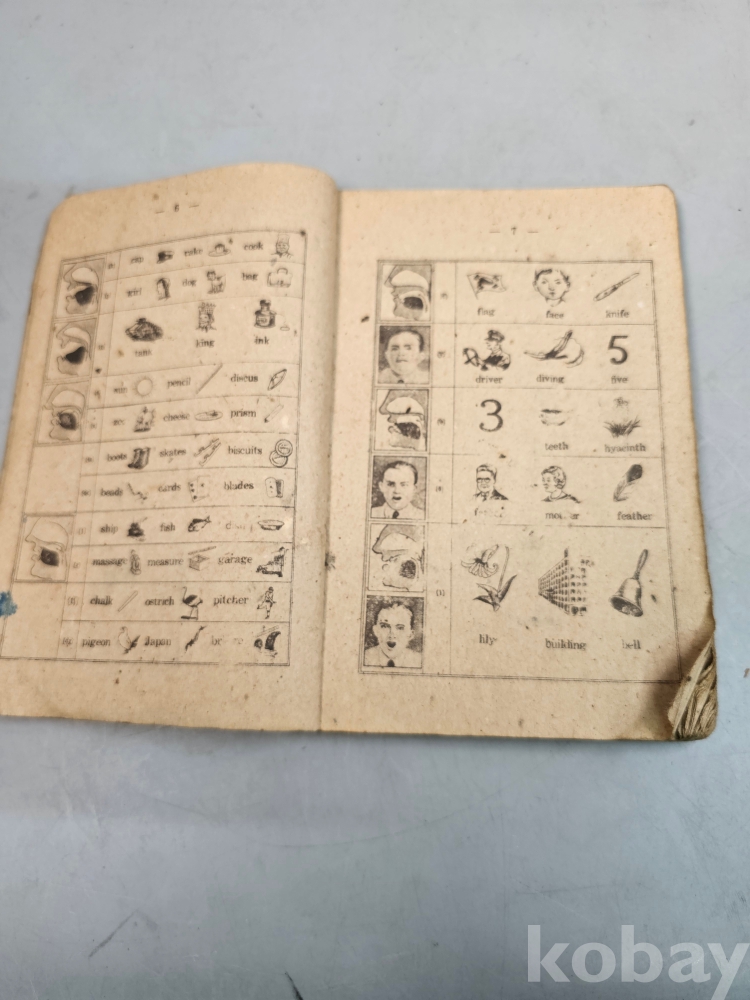 — 6 —
cake cook
girl dog bag
king ink
sun pencil discus
cheese prism
boots skates biscuits
beads cards blades
ship fish
massage measure garage
chalk ostrich pitcher
pigeon Japan
— 7 —
flag face knife
driver diving 5 five
3 teeth hyacinth
feather
lily building bell
kobay